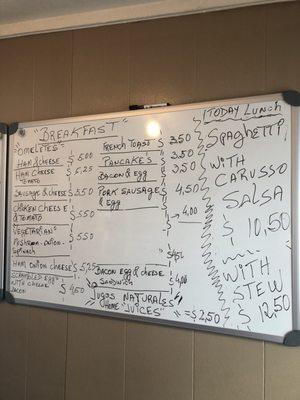 "BREAKFAST"
"OMELETES"
HAM & CHEESE $ 5.00
HAM CHEESE TOMATO $ 5,25
SAUSAGE & CHEESE $ 5.50
CHICKEN CHEESE & TOMATO $ 5.50
VEGETARIAN
MUSHROOM - ONION - SPINACH $ 5.50
HAM ONION CHEESE $ 5,25
SCRAMBLED EGG WITH CHEESE BACON $ 4,50
FRENCH TOAST $ 3.50
PANCAKES $ 3.50
BACON & EGG $ 3.50
PORK SAUSAGE & EGG $ 4,50
4,00
BACON EGG & CHEESE SANDWICH $ 4,00
JUGOS NATURALES
HOME "JUICES" = $ 2,50
TODAY LUNCH
SPAGHETTI
WITH
CARUSSO
SALSA
$ 10,50
WITH
STEW
$ 12,50